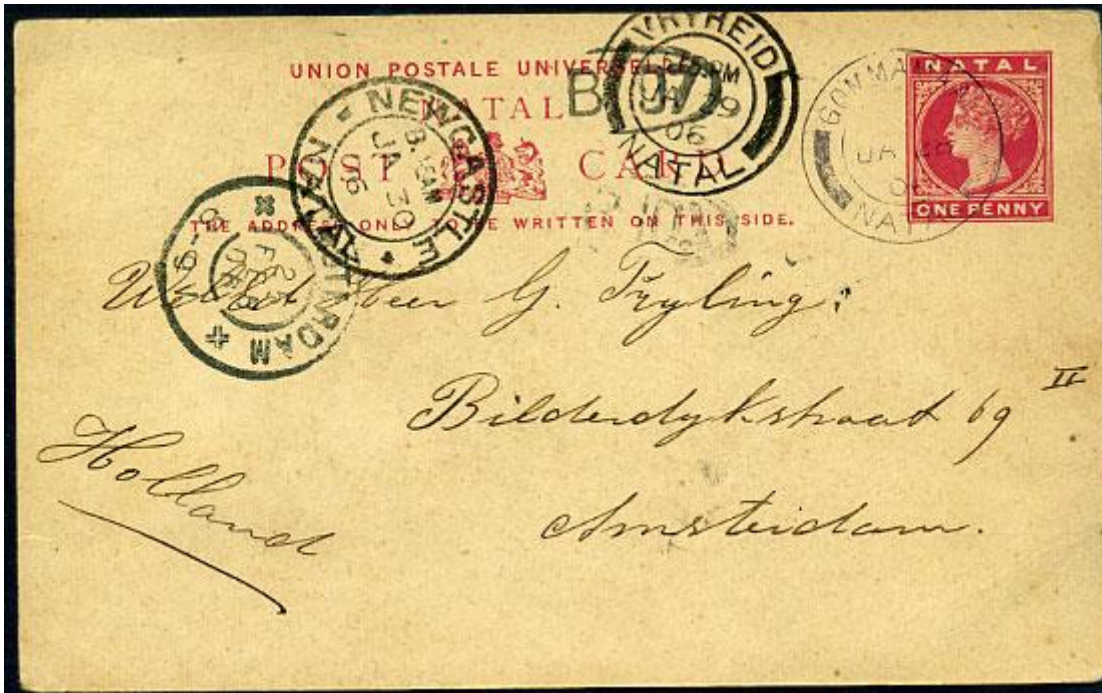 UNION POSTALE UNIVERSELLE
NATAL
POST CARD
THE ADDRESS ONLY TO BE WRITTEN ON THIS SIDE.
NATAL
ONE PENNY
VRYHEID
PM
JA 29
06
NATAL
NEWCASTLE
JA 30
06
NATAL
JA
NATAL
AMSTERDAM
FEB
G. Tryling;
Bilderdykstraat 69 II
Amsterdam.
Holland